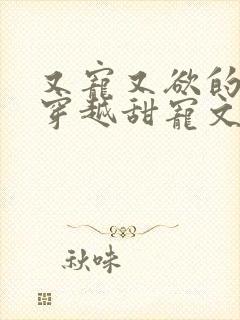 又寵又欲的
穿越甜寵文
秋味